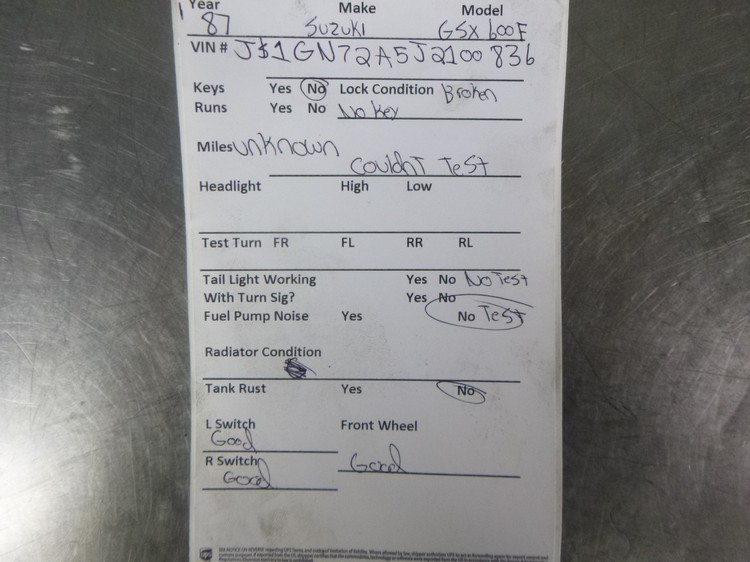 Year Make Model
87 SUZUKI GSX 600F
VIN # JS1GN72A5J2100836
Keys Yes No Lock Condition Broken
Runs Yes No No Key
Miles unknown
Couldnt Test
Headlight High Low
Test Turn FR FL RR RL
Tail Light Working Yes No No Test
With Turn Sig? Yes No
Fuel Pump Noise Yes No Test
Radiator Condition
Tank Rust Yes No
L Switch Front Wheel
Good
R Switch Good
Good